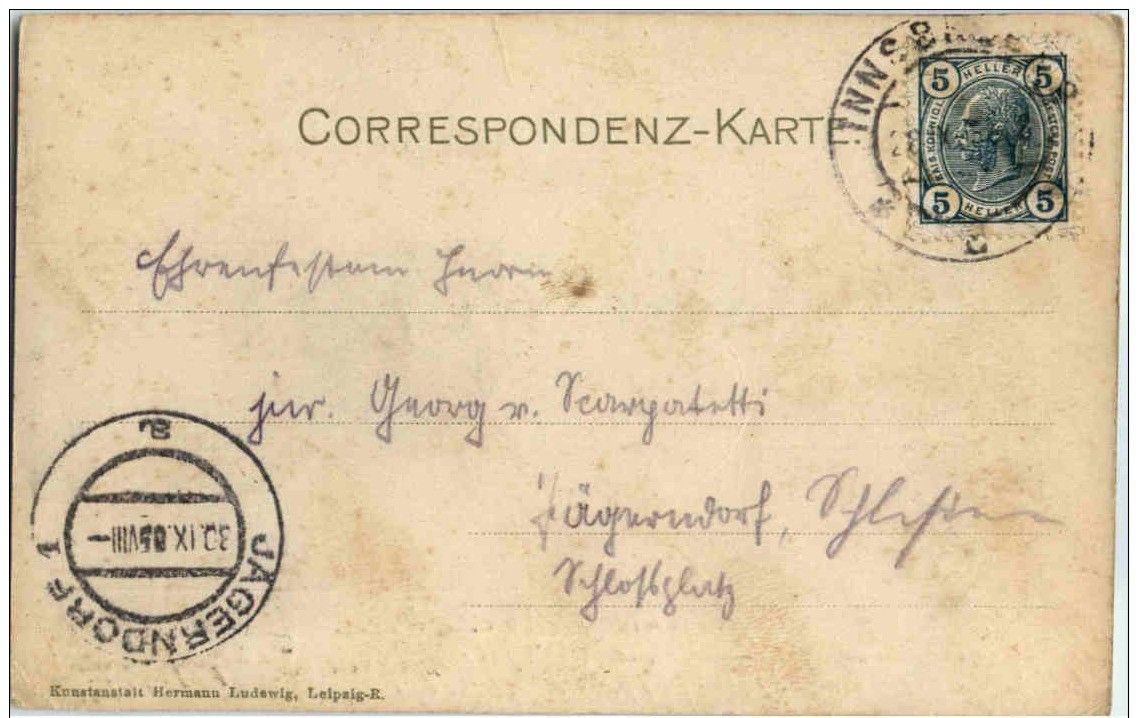 CORRESPONDENZ-KARTE.
INNSBRUCK
5 HELLER 5
5 HELLER 5
Ehrenfestem Herrn
jur. Georg v. Scarpatetti
Jägerndorf, Schlesien
Schlossplatz
JÄGERNDORF 1
30.IX.05 VIII-
a
Kunstanstalt Hermann Ludewig, Leipzig-R.